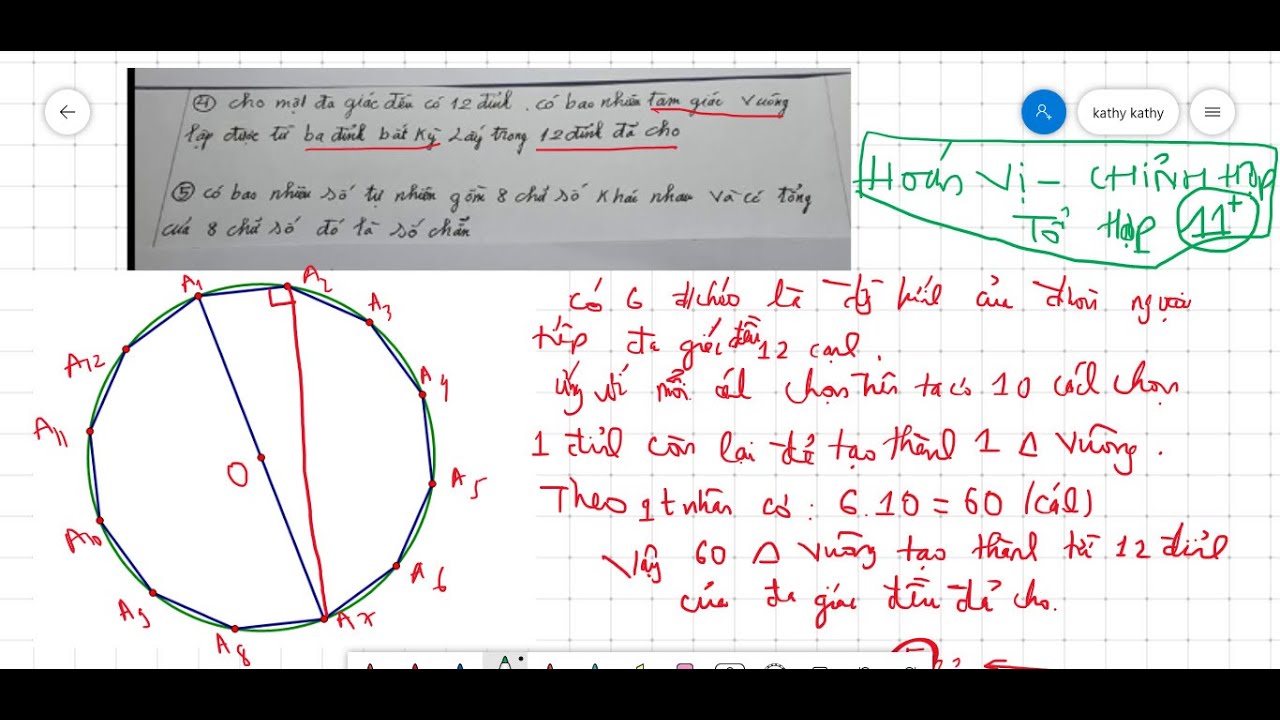 ④ Cho một đa giác đều có 12 đỉnh. có bao nhiêu tam giác vuông
lập được từ ba đỉnh bất kỳ Lấy trong 12 đỉnh đã cho
⑤ có bao nhiêu số tự nhiên gồm 8 chữ số khác nhau và có tổng
của 8 chữ số đó là số chẵn
kathy kathy
HOÁN VỊ - CHỈNH HỢP
TỔ HỢP 11+
A1
A2
A3
A4
A5
A6
A7
A8
A9
A10
A11
A12
O
có 6 đ chéo là đg kính của đ
tiếp đa giác đều 12 cạnh.
ứng với mỗi cách chọn trên ta có 10 cách chọn
1 đỉnh còn lại để tạo thành 1 Δ vuông.
Theo qt nhân có: 6.10 = 60 (cách)
Vậy 60 Δ vuông tạo thành từ 12 đỉnh
của đa giác đều đã cho.